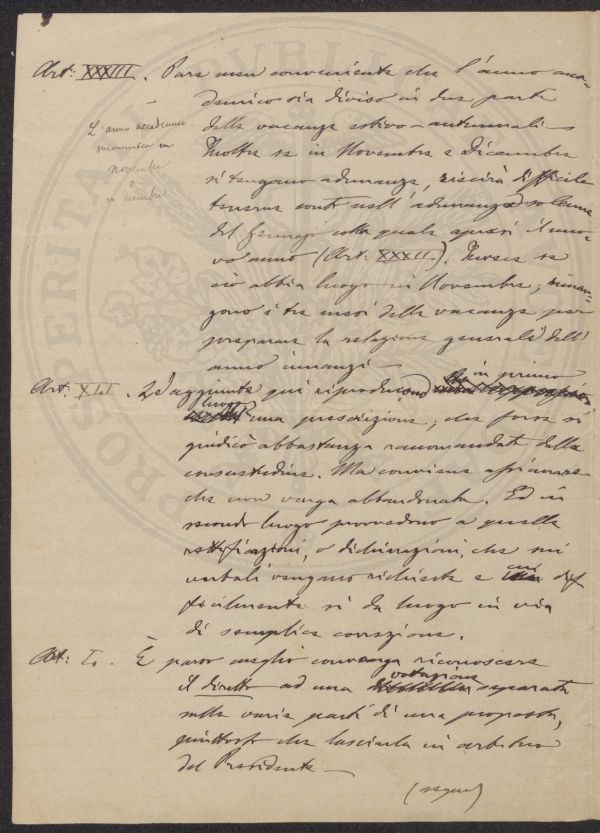 Art: XXXIII. Pare men conveniente che l'anno acca-
demico sia diviso in due parti
dalle vacanze estivo-autunnali –
L'anno accademico
incomincia in
novembre
o
in dicembre
Inoltre se in Novembre e Dicembre
si tengano adunanze, riescirà difficile
tenerne conto nell'adunanza solenne
del Gennajo colla quale apresi il nuo-
vo anno (Art: XXXII.). Invece se
ciò abbia luogo in Novembre, riman-
gono i tre mesi delle vacanze per
preparare la relazione generale dell'
anno innanzi –
Art: XLI. Le aggiunte qui riproducono in primo
luogo una prescrizione, che forse si
giudicò abbastanza raccomandata dalla
consuetudine. Ma conviene assicurare
che non venga abbandonata. Ed in
secondo luogo provvedono a quelle
rettificazioni, o dichiarazioni, che nei
verbali vengano richieste e cui dif
ficilmente si dà luogo in via
di semplice correzione.
Art: L. È parso meglio convenga riconoscere
il diritto ad una votazione separata
sulle varie parti di una proposta,
piuttosto che lasciarla in arbitrio
del Presidente –
(segue)
PROSPERITATI PVBLICAE